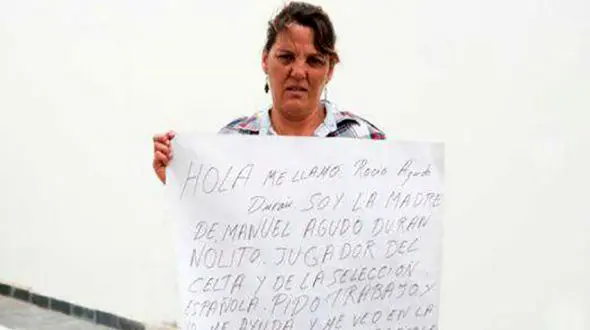 HOLA ME LLAMO. Rocio Agudo
Duran. SOY LA MADRE
DE, MANUEL AGUDO DURAN
NOLITO. JUGADOR DEL
CELTA Y DE LA SELECCION
ESPAÑOLA. PIDO TRABAJO, Y
NO ME AYUDA Y ME VEO EN LA